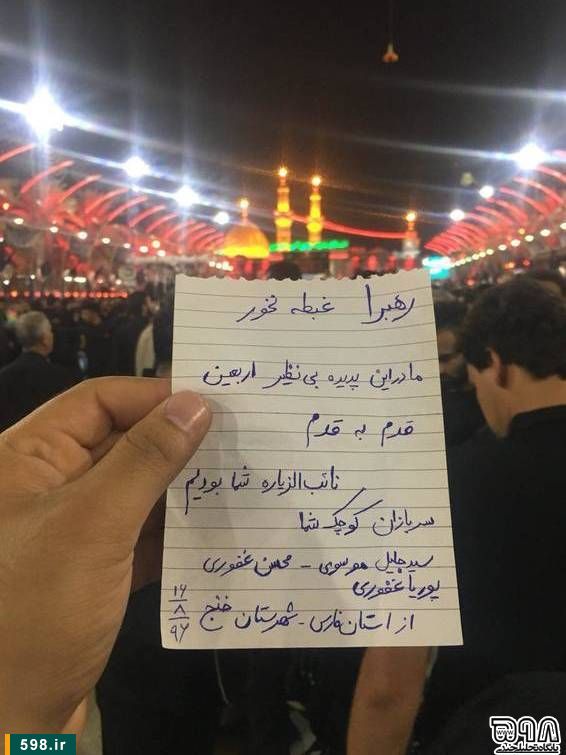 رهبرا غبطه نخور
ما در این پدیده بی نظیر اربعین
قدم به قدم
نائب الزیاره شما بودیم
سربازان کوچک شما
سید جلیل موسوی - محسن غفوری
پوریا غفوری
از استان فارس - شهرستان خنج
۱۶
۸
۹۶
598.ir